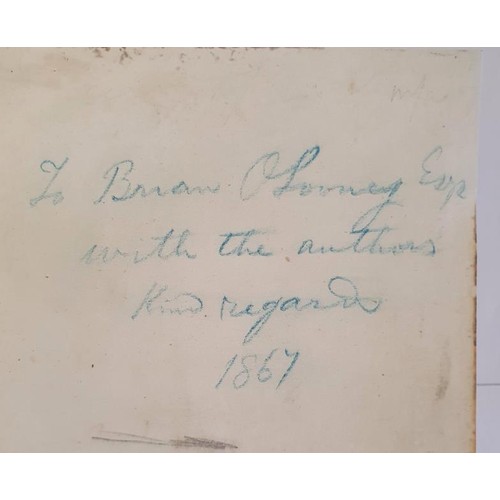 To Brian O'Looney Esq
with the authors
Kind regards
1867